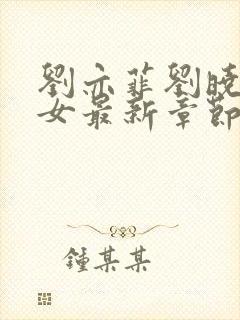 劉亦菲劉曉
女最新章節
鍾某某